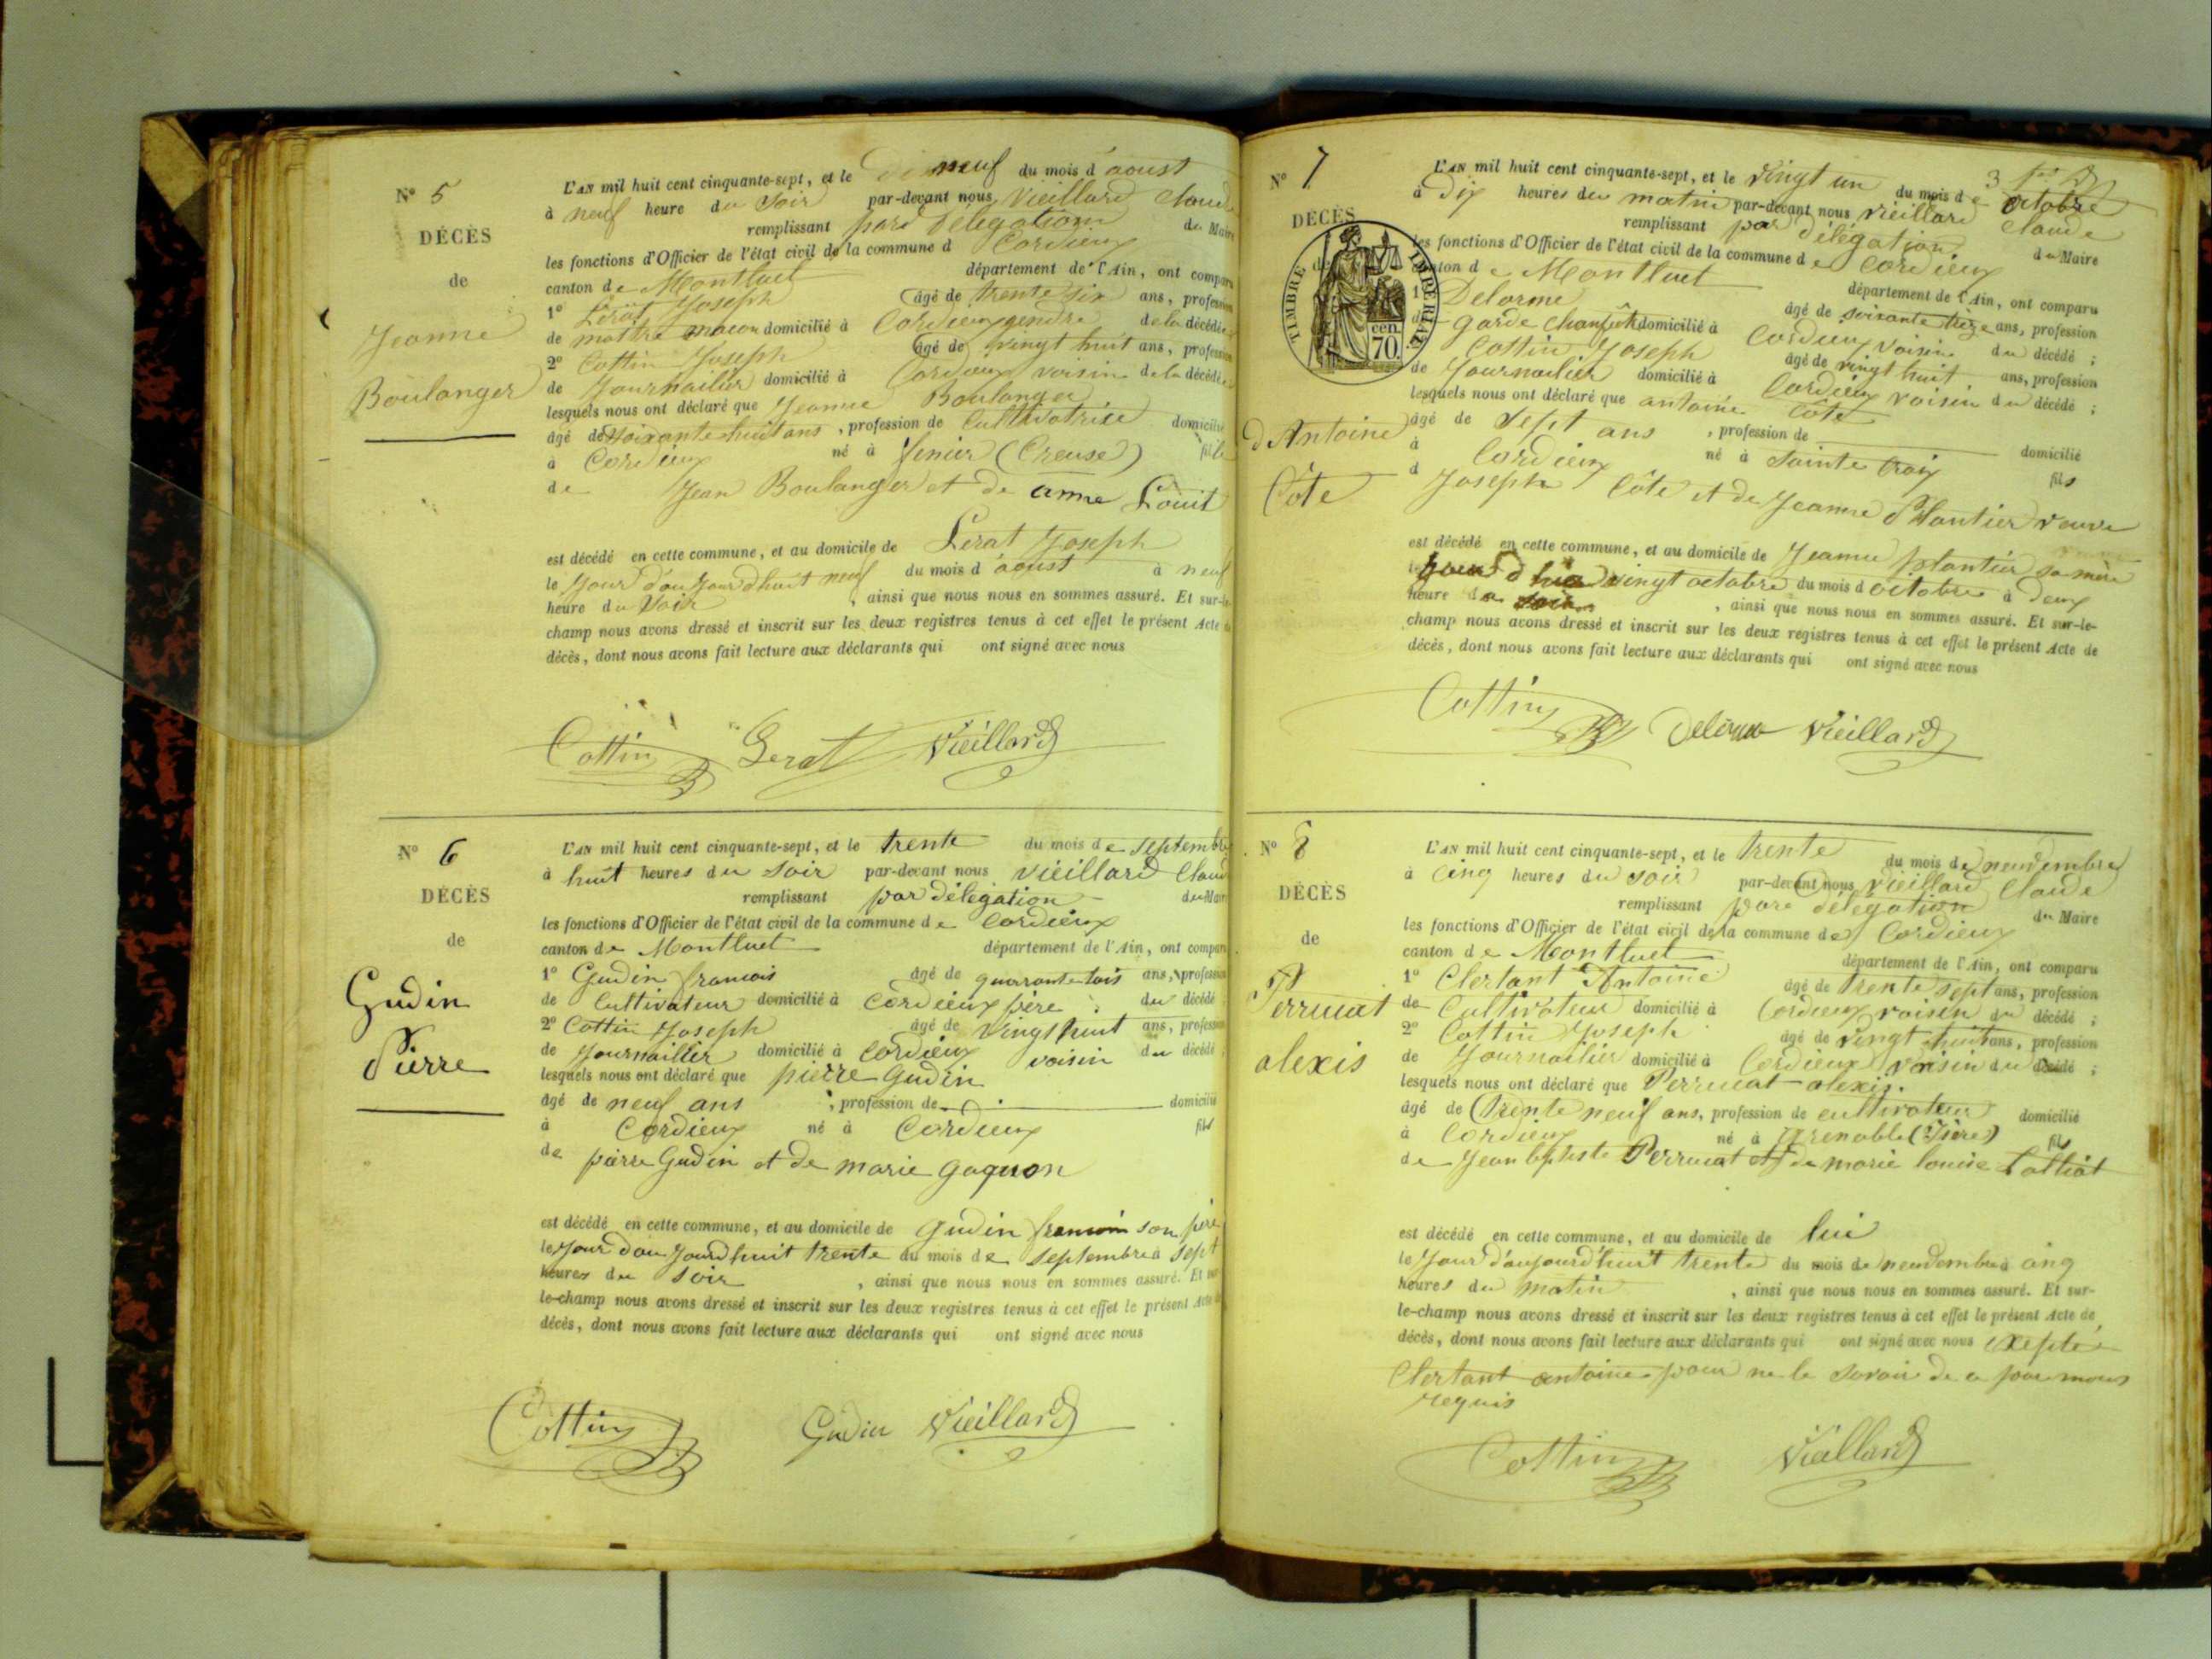 N° 5
DÉCÈS
de
Jeanne
Boulanger
L'AN mil huit cent cinquante-sept, et le neuf du mois d'aoust
à neuf heure du Soir par-devant nous Vieillard Claude
remplissant par délégation du Maire
les fonctions d'Officier de l'état civil de la commune d Cordieux
canton de Montluel département de l'Ain, ont comparu
1° Lerat Joseph âgé de trente six ans, profession
de maitre macon domicilié à Cordieux gendre de la décédée
2° Cottin Joseph âgé de vingt huit ans, profession
de Journailier domicilié à Cordieux voisin de la décédée
lesquels nous ont déclaré que Jeanne Boulanger
âgé de soixante huit ans, profession de Cultivatrice domicilié
à Cordieux né à (Creuse) fille
de Jean Boulanger et de anne Louit
est décédé en cette commune, et au domicile de Lerat Joseph
le Jour d'aujourd'huit neuf du mois d'aoust à neuf
heure du Soir, ainsi que nous nous en sommes assuré. Et sur-le-
champ nous avons dressé et inscrit sur les deux registres tenus à cet effet le présent Acte de
décès, dont nous avons fait lecture aux déclarants qui ont signé avec nous
Cottin Lerat Vieillard
N° 6
DÉCÈS
de
Gudin
Pierre
L'AN mil huit cent cinquante-sept, et le trente du mois de septembre
à huit heures du soir par-devant nous vieillard Claude
remplissant par délégation du Maire
les fonctions d'Officier de l'état civil de la commune de Cordieux
canton de Montluel département de l'Ain, ont comparu
1° Gudin francois âgé de quarante tois ans, profession
de Cultivateur domicilié à Cordieux père du décédé
2° Cottin Joseph âgé de vingt huit ans, profession
de Journailier domicilié à Cordieux voisin du décédé
lesquels nous ont déclaré que pierre Gudin
âgé de neuf ans, profession de domicilié
à Cordieux né à Cordieux fils
de pierre Gudin et de marie gagnon
est décédé en cette commune, et au domicile de Gudin francois son père
le Jour d'au Jourdhuit trente du mois de septembre à sept
heures du soir, ainsi que nous nous en sommes assuré. Et sur-
le-champ nous avons dressé et inscrit sur les deux registres tenus à cet effet le présent Acte de
décès, dont nous avons fait lecture aux déclarants qui ont signé avec nous
Cottin Gudin Vieillard
N° 7
DÉCÈS
TIMBRE IMPÉRIAL
70 cen.
d'Antoine
Côte
L'AN mil huit cent cinquante-sept, et le vingt un du mois de octobre
à dix heures du matin par-devant nous vieillard Claude
remplissant par délégation du Maire
les fonctions d'Officier de l'état civil de la commune de Cordieux
canton de Montluel département de l'Ain, ont comparu
1° Delorme âgé de soixante treize ans, profession
de garde domicilié à Cordieux voisin du décédé;
Cottin Joseph âgé de vingt huit ans, profession
de Journailier domicilié à Cordieux voisin du décédé;
lesquels nous ont déclaré que antoine Côte
âgé de sept ans, profession de domicilié
à Cordieux né à sainte Croix fils
d Joseph Côte et de Jeanne Plantier veuve
est décédé en cette commune, et au domicile de Jeanne plantier sa mère
le jour d'hier vingt octobre du mois d octobre à deux
heure du soir, ainsi que nous nous en sommes assuré. Et sur-le-
champ nous avons dressé et inscrit sur les deux registres tenus à cet effet le présent Acte de
décès, dont nous avons fait lecture aux déclarants qui ont signé avec nous
Cottin Delorme Vieillard
N° 8
DÉCÈS
de
Perrucat
alexis
L'AN mil huit cent cinquante-sept, et le trente du mois de nenvembre
à Cinq heures du soir par-devant nous vieillard Claude
remplissant par délégation du Maire
les fonctions d'Officier de l'état civil de la commune de Cordieux
canton de Montluel département de l'Ain, ont comparu
1° Clertant Antoine âgé de trente sept ans, profession
de Cultivateur domicilié à Cordieux voisin du décédé;
2° Cottin Joseph âgé de vingt huit ans, profession
de Journailier domicilié à Cordieux voisin du décédé;
lesquels nous ont déclaré que Perrucat alexis.
âgé de trente neuf ans, profession de cultivateur domicilié
à Cordieux né à Grenoble (Isère) fils
de Jean baptiste Perrucat et de marie louise
est décédé en cette commune, et au domicile de lui
le Jour d'aujourd'huit trente du mois de nenvembre à cinq
heures du matin, ainsi que nous nous en sommes assuré. Et sur-
le-champ nous avons dressé et inscrit sur les deux registres tenus à cet effet le présent Acte de
décès, dont nous avons fait lecture aux déclarants qui ont signé avec nous exepté
Clertant antoine pour ne le savoir de ce par nous
requis
Cottin Vieillard